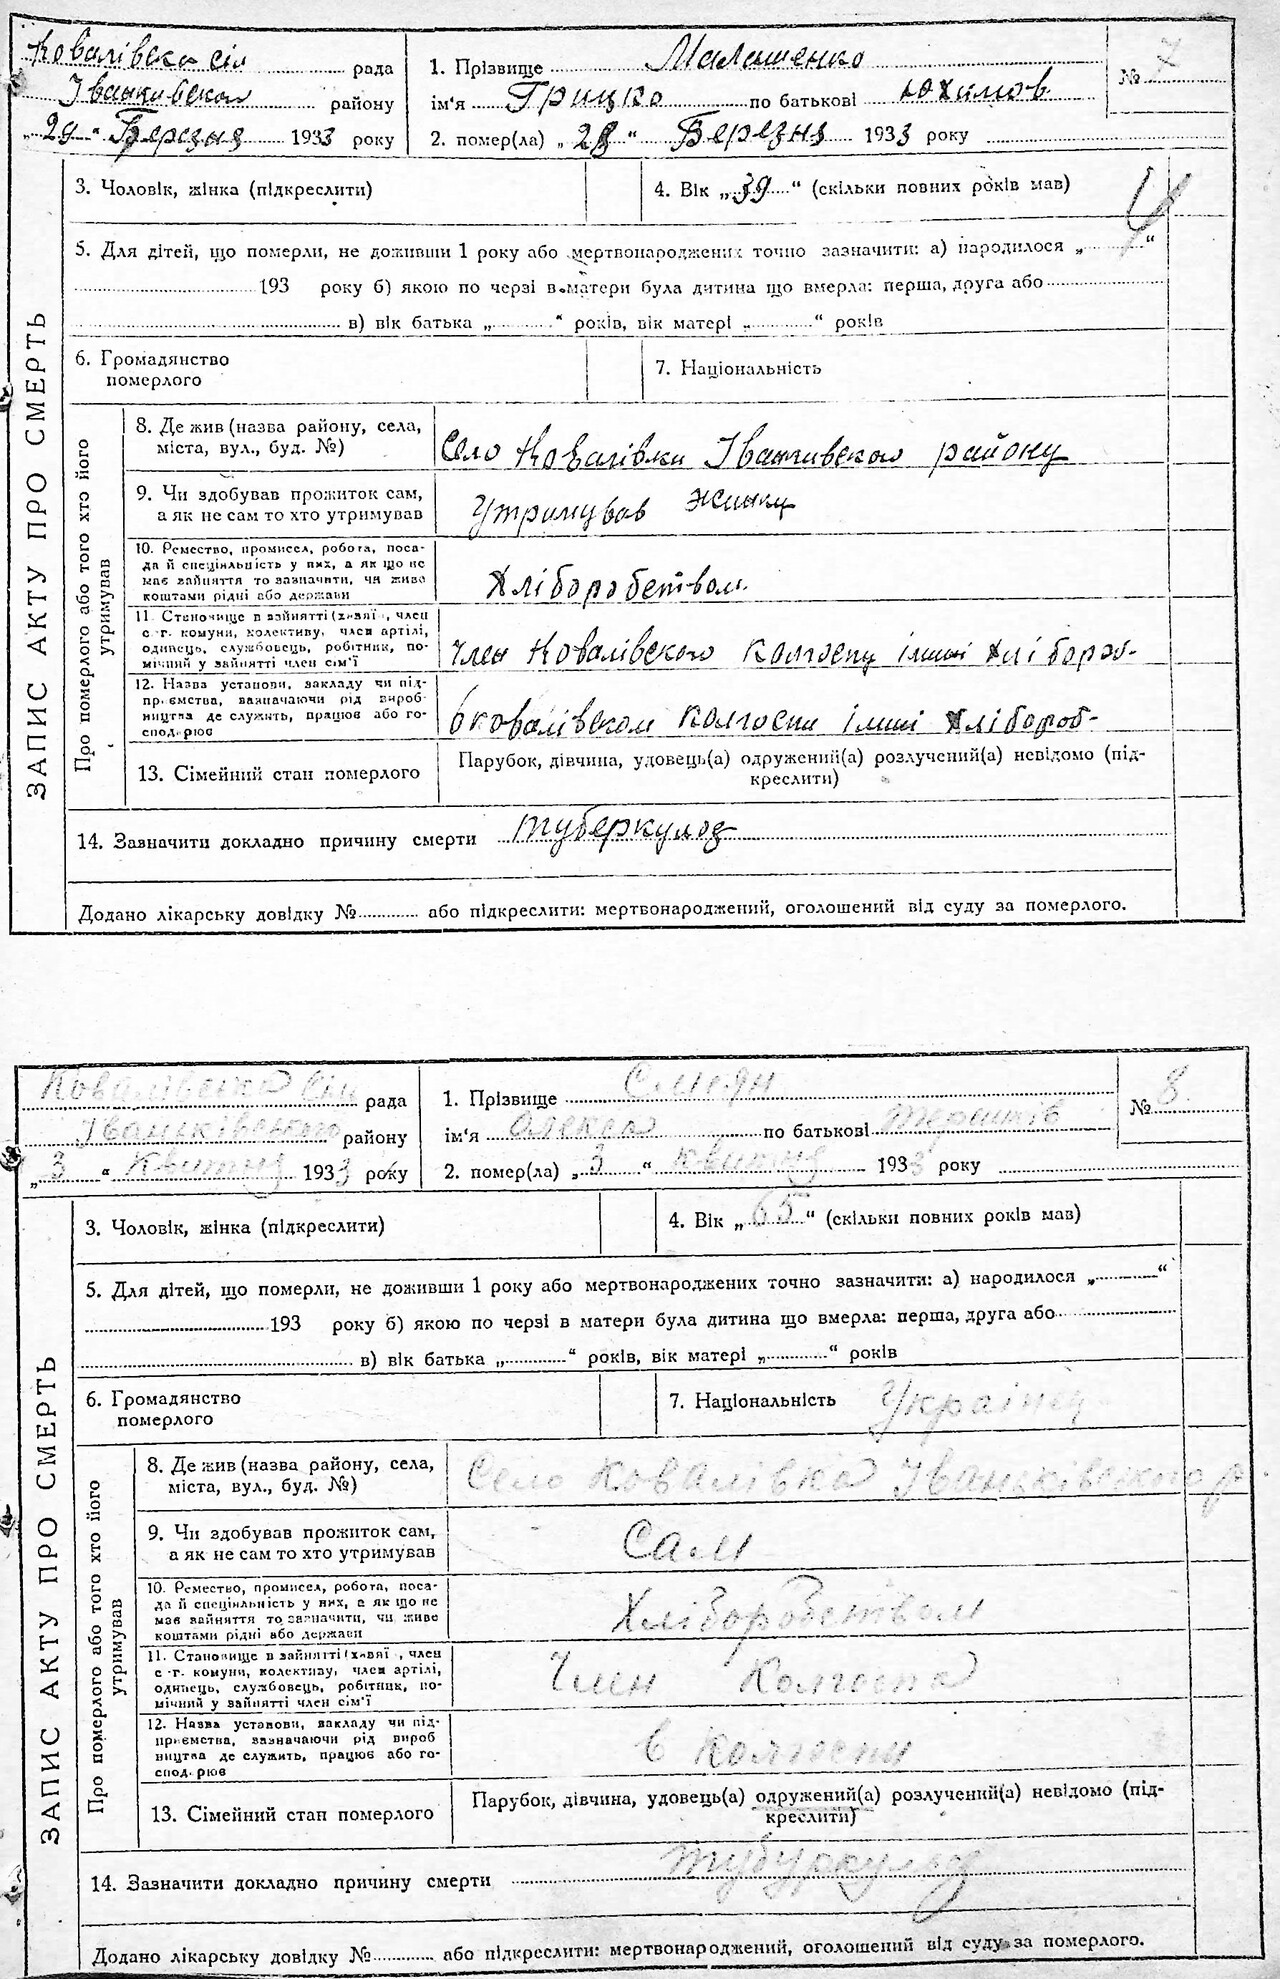 Ковалівска сіл рада
Іванкивского району
„29“ Березня 1933 року
1. Прізвище Малашенко
ім'я Грицко по батькові юхимов
№ 7
2. помер(ла) „28“ Березня 1933 року
ЗАПИС АКТУ ПРО СМЕРТЬ
3. Чоловік, жінка (підкреслити)
4. Вік „39“ (скільки повних років мав)
5. Для дітей, що померли, не доживши 1 року або мертвонароджених точно зазначити: а) народилося „ “
193 року б) якою по черзі в матери була дитина що вмерла: перша, друга або
в) вік батька „ “ років, вік матері „ “ років
6. Громадянство
померлого
7. Національність
Про померлого або того хто його
утримував
8. Де жив (назва району, села,
міста, вул., буд. №)
Село Ковалівка Іванкивского району
9. Чи здобував прожиток сам,
а як не сам то хто утримував
Утримував жинку
10. Ремество, промисел, робота, поса-
да й спеціяльність у них, а як що не
має зайняття то зазначити, чи живе
коштами рідні або держави
Хліборобством
11. Становище в зайнятті (хазяї , член
с-г. комуни, колективу, член артілі,
одинець, службовець, робітник, по-
мічний у зайнятті член сім'ї
Член Ковалівского колгоспу
12. Назва установи, закладу чи під-
приємства, зазначаючи рід вироб
ництва де служить, працює або го-
сподарює
в ковалівском колгоспи
13. Сімейний стан померлого
Парубок, дівчина, удовець(а) одружений(а) розлучений(а) невідомо (під-
креслити)
14. Зазначити докладно причину смерти туберкульоз
Додано лікарську довідку № або підкреслити: мертвонароджений, оголошений від суду за померлого.
Ковалівска Сіл рада
Іваньківського району
„3“ Квитня 1933 року
1. Прізвище Смиян
ім'я Олекса по батькові Терешків
№ 8
2. помер(ла) „3“ Квитня 1933 року
ЗАПИС АКТУ ПРО СМЕРТЬ
3. Чоловік, жінка (підкреслити)
4. Вік „65“ (скільки повних років мав)
5. Для дітей, що померли, не доживши 1 року або мертвонароджених точно зазначити: а) народилося „ “
193 року б) якою по черзі в матери була дитина що вмерла: перша, друга або
в) вік батька „ “ років, вік матері „ “ років
6. Громадянство
померлого
7. Національність Українец
Про померлого або того хто його
утримував
8. Де жив (назва району, села,
міста, вул., буд. №)
Село Ковалівка Іваньківского р
9. Чи здобував прожиток сам,
а як не сам то хто утримував
Сам
10. Ремество, промисел, робота, поса-
да й спеціяльність у них, а як що не
має зайняття то зазначити, чи живе
коштами рідні або держави
Хліборобством
11. Становище в зайнятті (хазяї , член
с-г. комуни, колективу, член артілі,
одинець, службовець, робітник, по-
мічний у зайнятті член сім'ї
Член Колгоспа
12. Назва установи, закладу чи під-
приємства, зазначаючи рід вироб
ництва де служить, працює або го-
сподарює
в колгоспи
13. Сімейний стан померлого
Парубок, дівчина, удовець(а) одружений(а) розлучений(а) невідомо (під-
креслити)
14. Зазначити докладно причину смерти тубуркульоз
Додано лікарську довідку № або підкреслити: мертвонароджений, оголошений від суду за померлого.